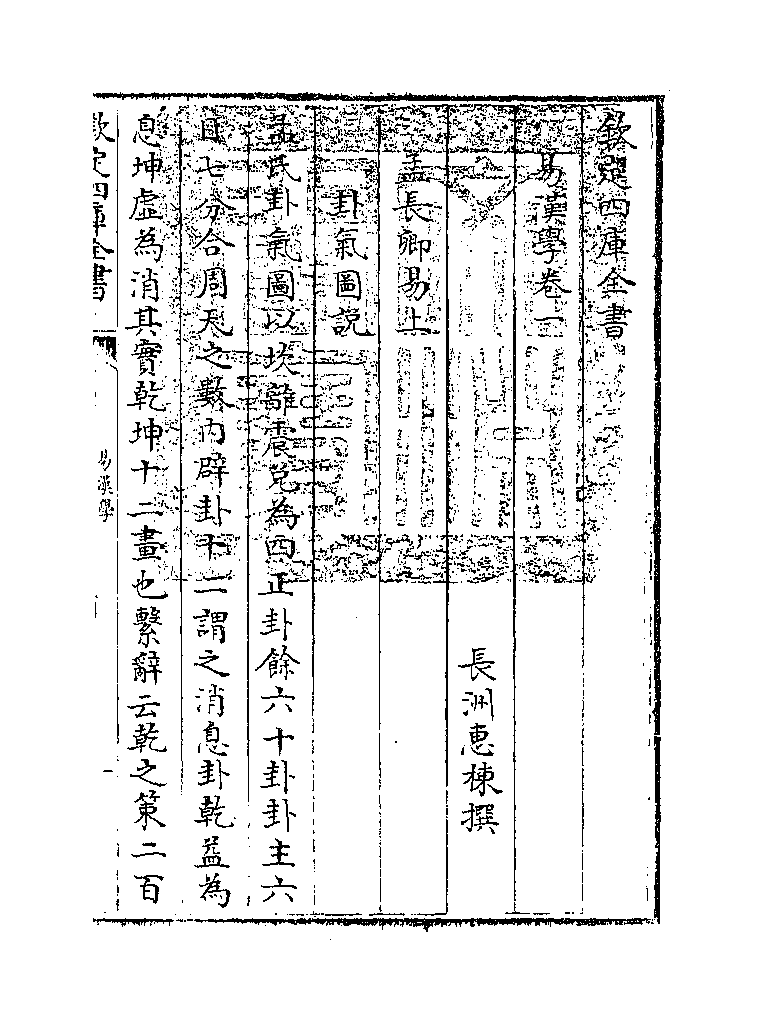 欽定四庫全書
易漢學卷一
長洲惠棟撰
孟長卿易上
卦氣圖説
孟氏卦氣圖以坎離震兌為四正卦餘六十卦卦主六
日七分合周天之數内辟卦十二謂之消息卦乾盈為
息坤虛為消其實乾坤十二畫也繫辭云乾之策二百
欽定四庫全書
易漢學
一